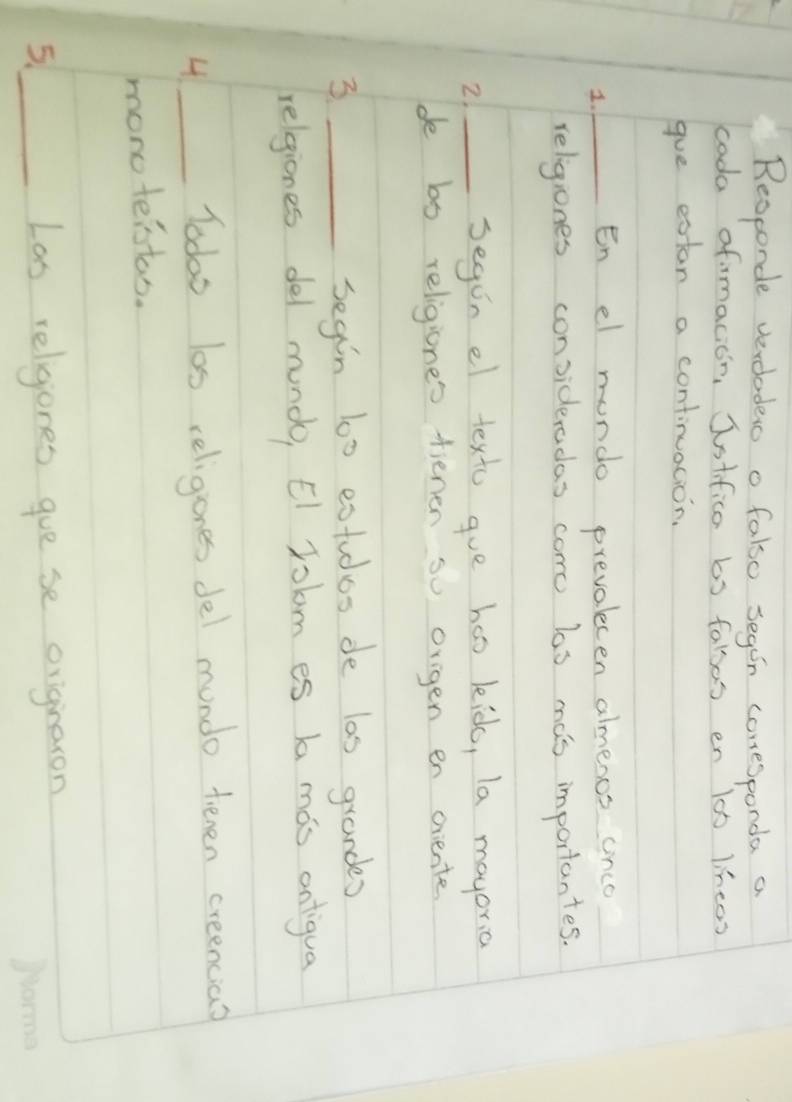 Responde verdadero o falso según corresponda a
cada afirmación, Justifica las falsas en las líneas
que estan a continuación.
1. ____ En el mundo prevalecen almenos cinco
religiones consideradas como las más importantes.
2. ____ Según el texto que has leído, la mayoria
de las religiones tienen su origen en oriente
3 ____ Según los estudios de las grandes
relgiones del mundo, El Islam es la más antigua
4. ____ Todas las religiones del mundo tienen creencias
monoteístas.
5. ____ Las relgiones que se originaron
Norma